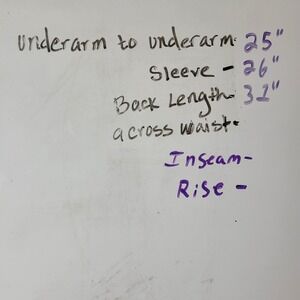 underarm to underarm: 25"
Sleeve - 26"
Back Length- 31"
across waist-
Inseam-
Rise -